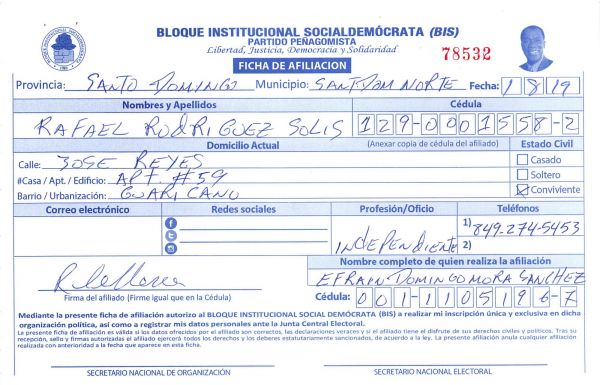 BLOQUE INSTITUCIONAL SOCIALDEMÓCRATA (BIS)
PARTIDO PEÑAGOMISTA
Libertad, Justicia, Democracia y Solidaridad
78532
FICHA DE AFILIACION
Provincia: SANTO DOMINGO Municipio: SANT. DOM NORTE Fecha: 1/8/19
Nombres y Apellidos Cédula
RAFAEL RODRIGUEZ SOLIS 129-0001558-2
Domicilio Actual (Anexar copia de cédula del afiliado) Estado Civil
Calle: JOSE REYES Casado
#Casa / Apt. / Edificio: APT. #59 Soltero
Barrio / Urbanización: GUARICANO Conviviente
Correo electrónico Redes sociales Profesión/Oficio Teléfonos
1) 849-274-5453
INDEPENDIENTE 2)
Nombre completo de quien realiza la afiliación
EFRAIN DOMINGO MORA SANCHEZ
Firma del afiliado (Firme igual que en la Cédula) Cédula: 001-1105196-7
Mediante la presente ficha de afiliación autorizo al BLOQUE INSTITUCIONAL SOCIAL DEMÓCRATA (BIS) a realizar mi inscripción única y exclusiva en dicha
organización política, así como a registrar mis datos personales ante la Junta Central Electoral.
La presente ficha de afiliación es válida si los datos ofrecidos por el afiliado son correctos, las declaraciones veraces y si el afiliado tiene el disfrute de sus derechos civiles y políticos. Tras su
recepción, sello y firmas autorizadas el afiliado ejercerá todos los derechos y los deberes estatutariamente sancionados, de acuerdo a la ley. La presente afiliación anula cualquier afiliación
realizada con anterioridad a la fecha que aparece en esta ficha.
SECRETARIO NACIONAL DE ORGANIZACIÓN SECRETARIO NACIONAL ELECTORAL